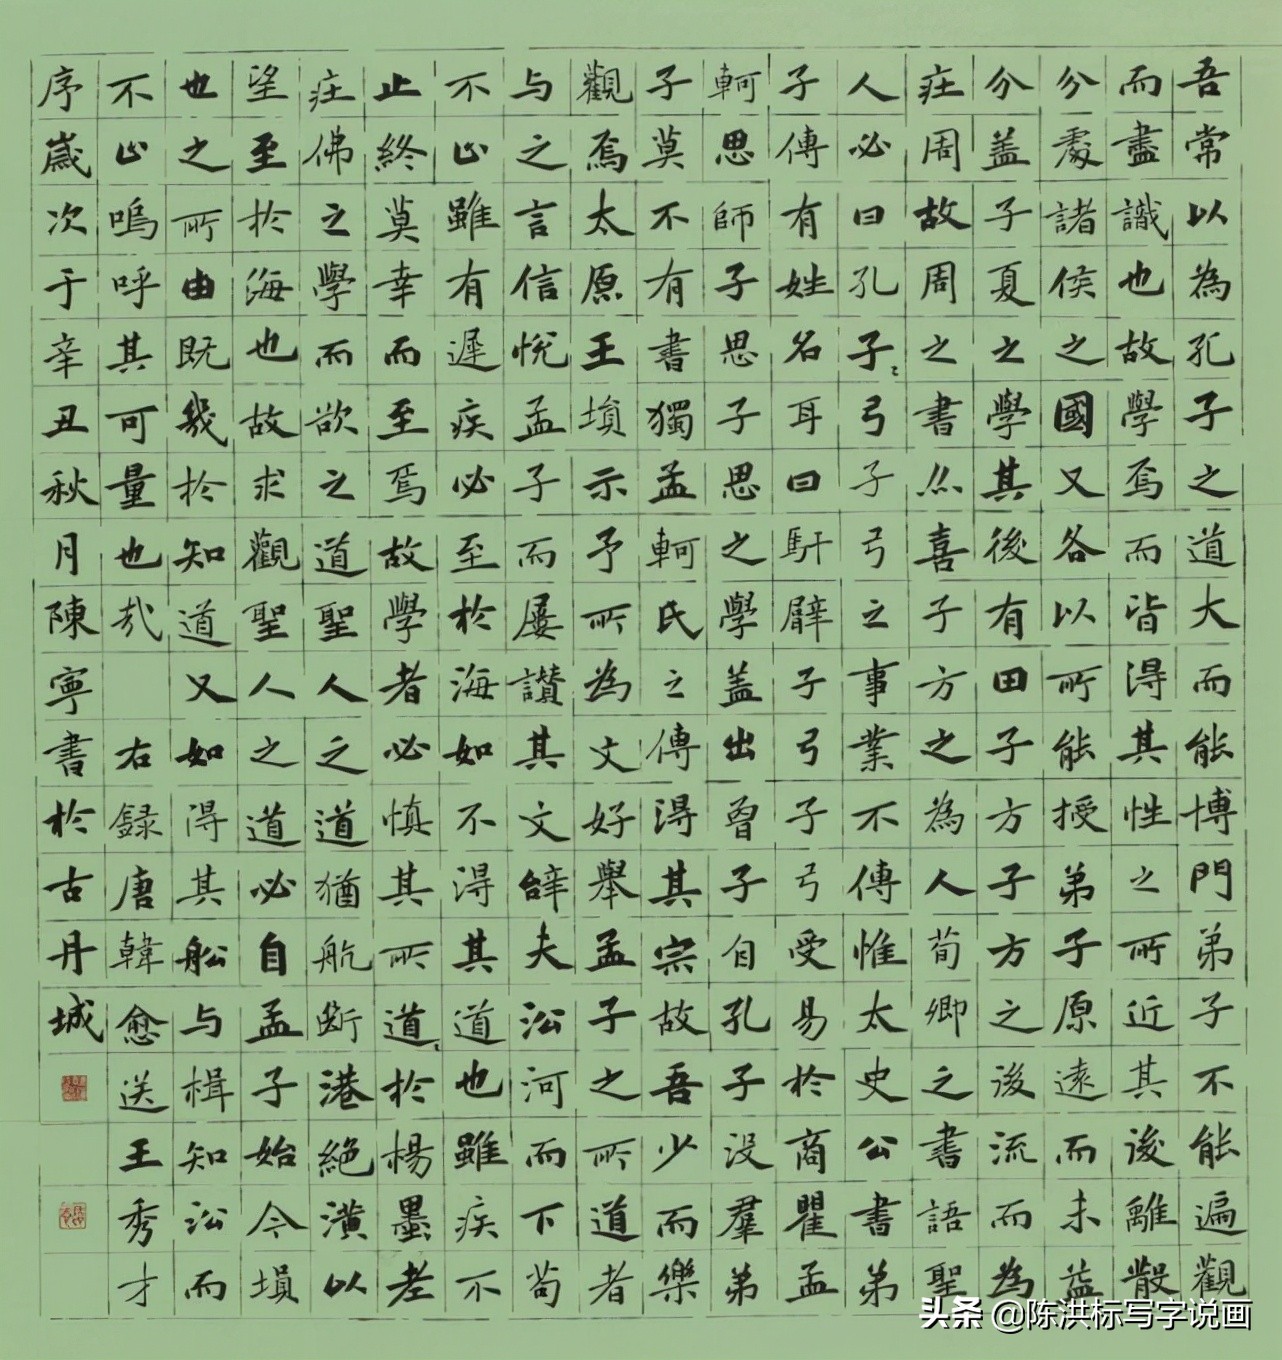 吾常以為孔子之道大而能博門弟子不能遍觀
而盡識也故學焉而皆得其性之所近其後離散
分處諸侯之國又各以所能授弟子原遠而未益
分盖子夏之學其後有田子方子方之後流而為
荘周故周之書喜子方之為人荀卿之書語聖
人必曰孔子弓子弓之事業不傳惟太史公書弟
子傳有姓名耳曰馯臂子弓子弓受易於商瞿孟
軻思師子思子思之學盖出曾子自孔子没羣弟
子莫不有書獨孟軻氏之傳得其宗故吾少而樂
觀焉太原王塤示予所為文好舉孟子之所道者
与之言信悅孟子而屡讚其文辝夫沿河而下苟
不止雖有遲疾必至於海如不得其道也雖疾不
止終莫幸而至焉故學者必慎其所道於楊墨老
荘佛之學而欲之道聖人之道猶航断港絕潢以
望至於海也故求觀聖人之道必自孟子始今塤
也之所由既幾於知道又如得其舩与楫知沿而
不止嗚呼其可量也㢤 右録唐韓愈送王秀才
序歲次于辛丑秋月陳寧書於古丹城
头条 @陈洪标写字说画